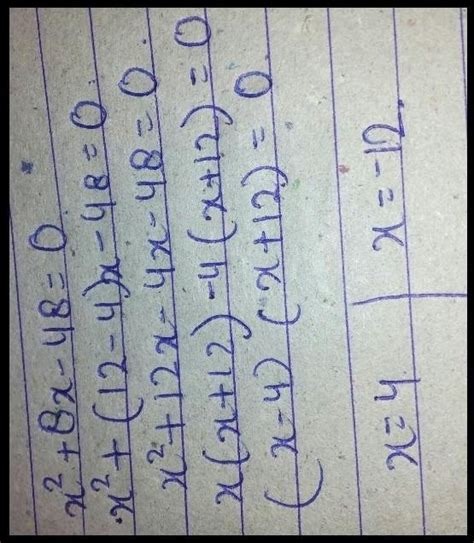 x² + 8x - 48 = 0.
x² + (12 - 4)x - 48 = 0.
x² + 12x - 4x - 48 = 0.
x(x + 12) - 4(x + 12) = 0
(x - 4) (x + 12) = 0.
x = 4 | x = -12.